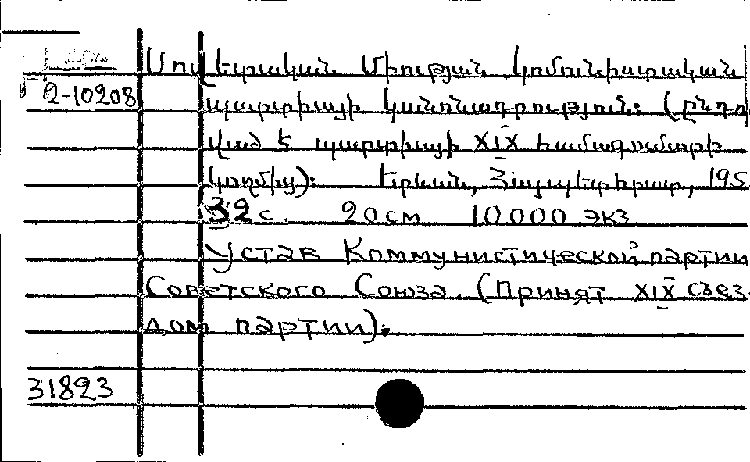 Սովետական Միության կոմունիստական
2-10208
պարտիայի կանոնադրություն: (Ընդու
ված է պարտիայի XIX համագումարի
կողմից): Երևան, Հայպետհրատ, 195
32 с. 20 см 10000 экз
Устав Коммунистической партии
Советского Союза. (Принят XIX съез-
дом партии).
31823